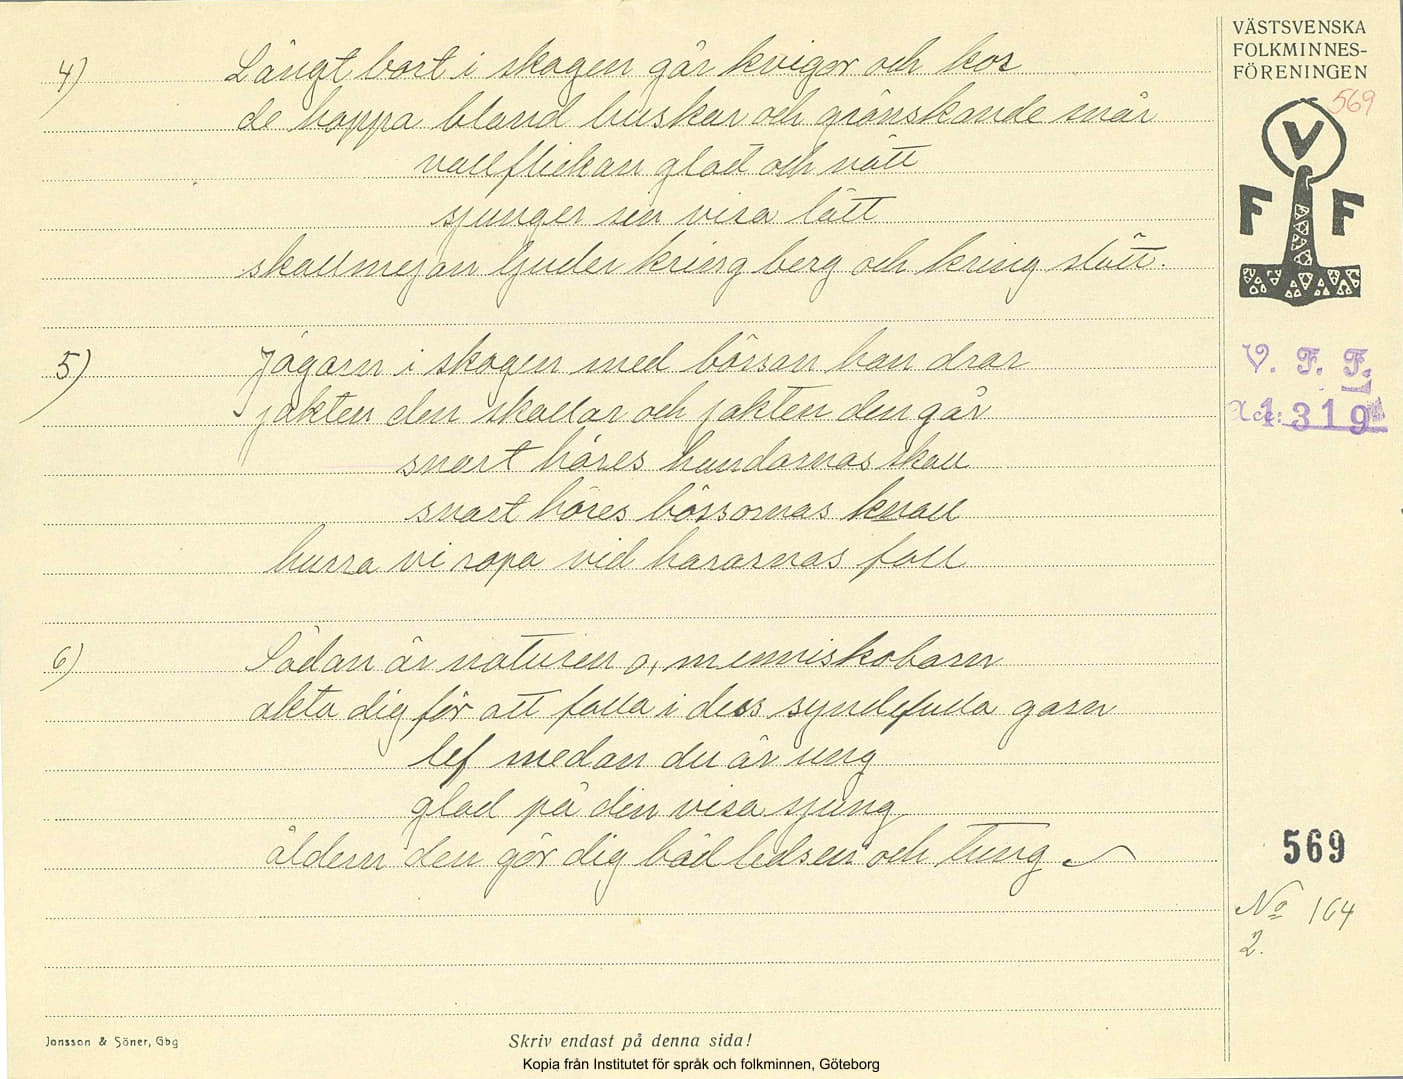 VÄSTSVENSKA
FOLKMINNES-
FÖRENINGEN
569
V
F F
V. F. F.
Acc: 1319
4) Långt bort i skogen går kvigor och kor
de hoppa bland buskar och grönskande snår
vallflickan glad och nätt
sjunger sin visa lätt
skallmejan ljuder kring berg och kring slätt.
5) Jägarn i skogen med bössan han drar
jakten den skallar och jakten den går
snart höres hundarnas skall
snart höres bössornas knall
hurra vi ropa vid hararnas fall
6) Sådan är naturen o, menniskobarn
akta dig för att falla i dess syndfulla garn
lef medan du är ung
glad på din visa sjung
åldern den gör dig båd ledsen och tung
569
No 164
2.
Jonsson & Söner, Gbg
Skriv endast på denna sida!
Kopia från Institutet för språk och folkminnen, Göteborg